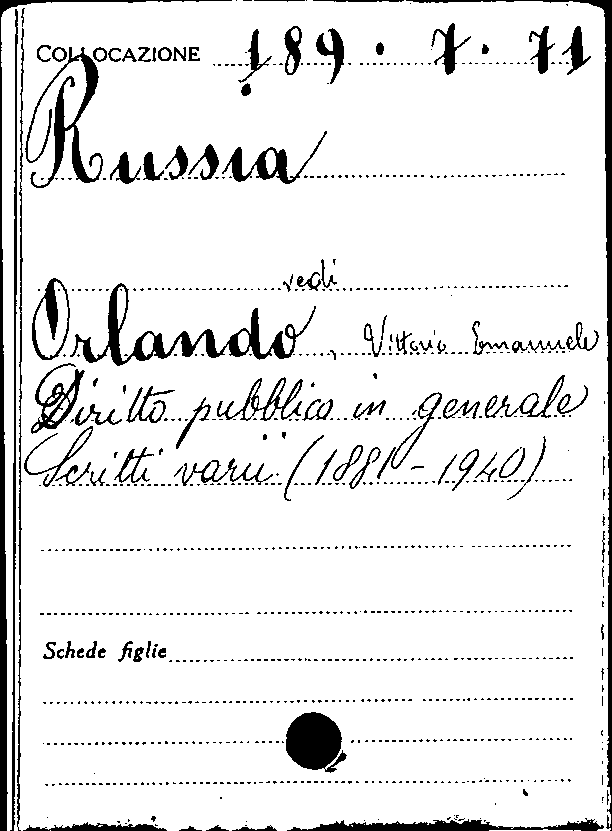 COLLOCAZIONE 189 · 7 · 71
Russia
vedi
Orlando, Vittorio Emanuele
Diritto pubblico in generale
Scritti varii (1881-1940)
Schede figlie